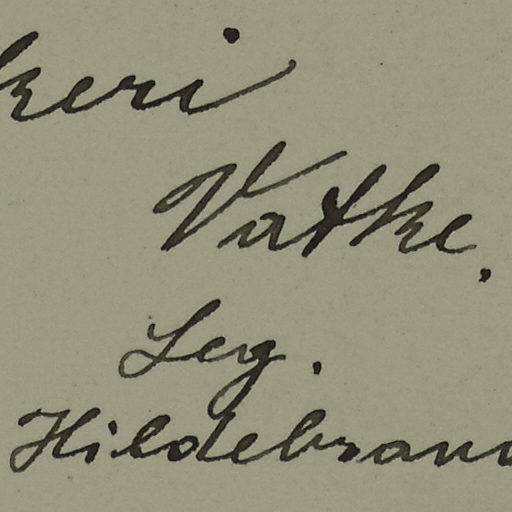 keri
Vatke.
Leg.
Hildebrand